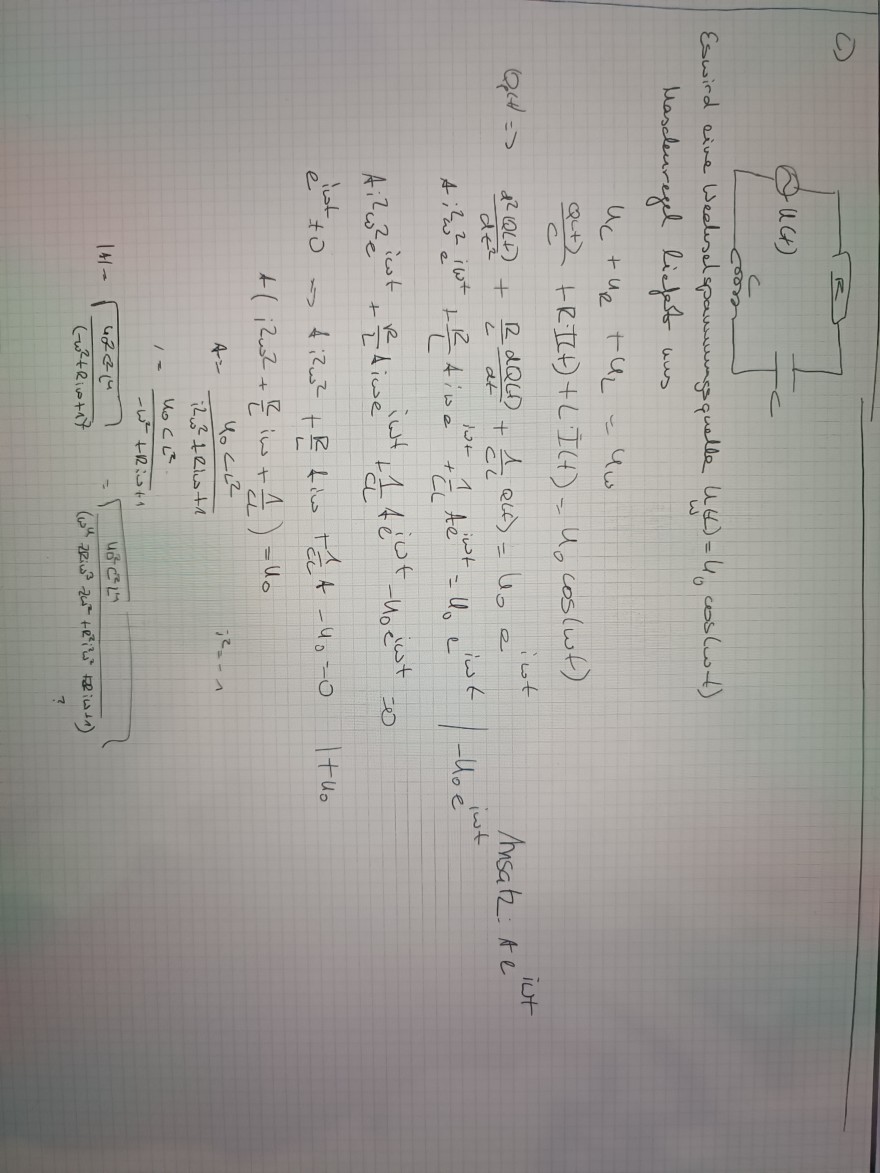 c)
R
U(t)
C
L
Es wird eine Wechselspannungsquelle U_w(t) = U₀ cos(ωt)
Maschenregel liefert uns
U_C + U_R + U_L = U_w
Q(t)/C + R·I(t) + L·İ(t) = U₀ cos(ωt)
Q(t) => d²Q(t)/dt² + R/L dQ(t)/dt + 1/CL Q(t) = U₀ e^{iωt} Ansatz: A e^{iωt}
A i²ω² e^{iωt} + R/L A iω e^{iωt} + 1/CL A e^{iωt} = U₀ e^{iωt} | -U₀ e^{iωt}
A i²ω² e^{iωt} + R/L A iω e^{iωt} + 1/CL A e^{iωt} - U₀ e^{iωt} = 0
e^{iωt} ≠ 0 => A i²ω² + R/L A iω + 1/CL A - U₀ = 0 | + U₀
A (i²ω² + R/L iω + 1/CL) = U₀
A = U₀ C L² / i²ω² + Riω + 1 i² = -1
= U₀ C L² / -ω² + Riω + 1
|A| = √ U₀² C² L⁴ / (-ω² + Riω + 1)² = √ U₀² C² L⁴
?